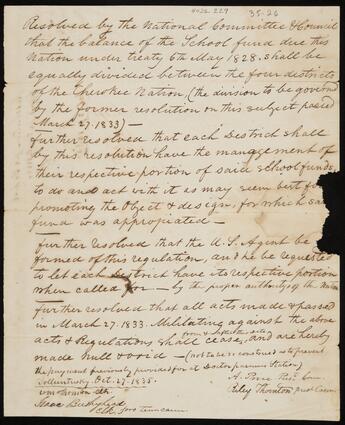 4026.229
35-26
Resolved by the National Committee & Council
that the balance of the School fund due this
Nation under treaty 6th May 1828. shall be
equally divided between the four districts
of the Cherokee Nation, (the division to be governd
by the former resolution on this subject passed
March 27. 1833) —
further resolved that each District shall
by this resolution have the management of
their respective portion of said school funds,
to do and act with it as may seem best for
promoting the Object & design, for which said
fund was appropriated —
further resolved that the U.S. Agent be
formed of this regulation, and he be requested
to let each district have its respective portion
when called for — by the proper authority of the Nation
further resolved that all acts made & passed
in March 27. 1833. Militating against the above
acts & Regulations shall cease, and are hereby
made Null & void — (not to be so construed as to prevent
the payment previously provided for
Tollunteesky Oct. 27. 1835.
A. Price Prest. Com.
Riley Thornton prest Council
Isaac Bushyhead
Clk. pro tem